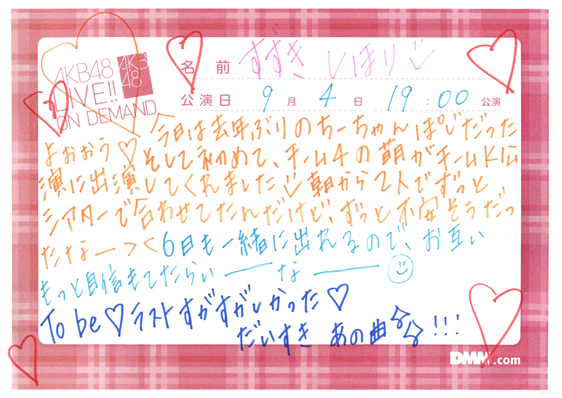 AKB48
LIVE!!
ON DEMAND
AKB48
名 前 すずき しほり
公演日 9 月 4 日 19:00 公演
今日は去年ぶりのちーちゃんぽじだった
よおおう♡そして初めて、チーム4の萌がチームK公
演に出演してくれました♡朝から2人でずっと
シアターで合わせてたんだけど、ずっと不安そうだっ
たなー>< 6日も一緒に出れるので、お互い
もっと自信もてたらいーなー☺
To be♡ラストすがすがしかった♡
だいすき あの曲☆☆!!!
DMM.com